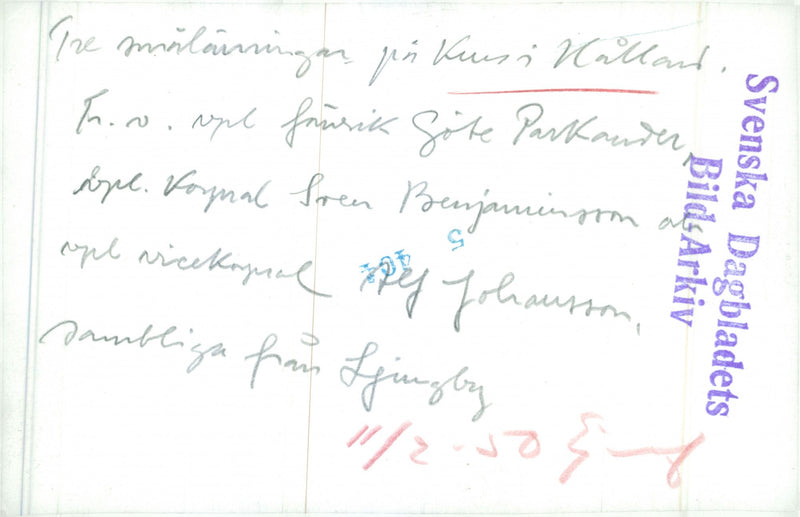 Tre smålänningar på Kurs i Hålland.
Fr. v. vpl furir Göte Parkander,
vpl. Korpral Sven Benjaminsson och
vpl vicekorpral Alf Johansson,
samtliga från Ljungby
11/2-50
Svenska Dagbladets
Bild-Arkiv
5